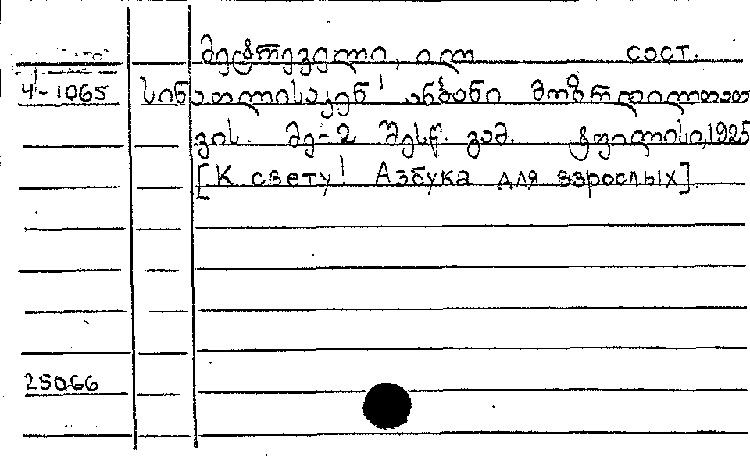 მეტრეველი, ილ сост.
4-1065 სინათლისაკენ! ანბანი მოზრდილთათ
ვის. მე-2 შესწ. გამ. ტფილისი, 1925
[К свету! Азбука для взрослых]
25066